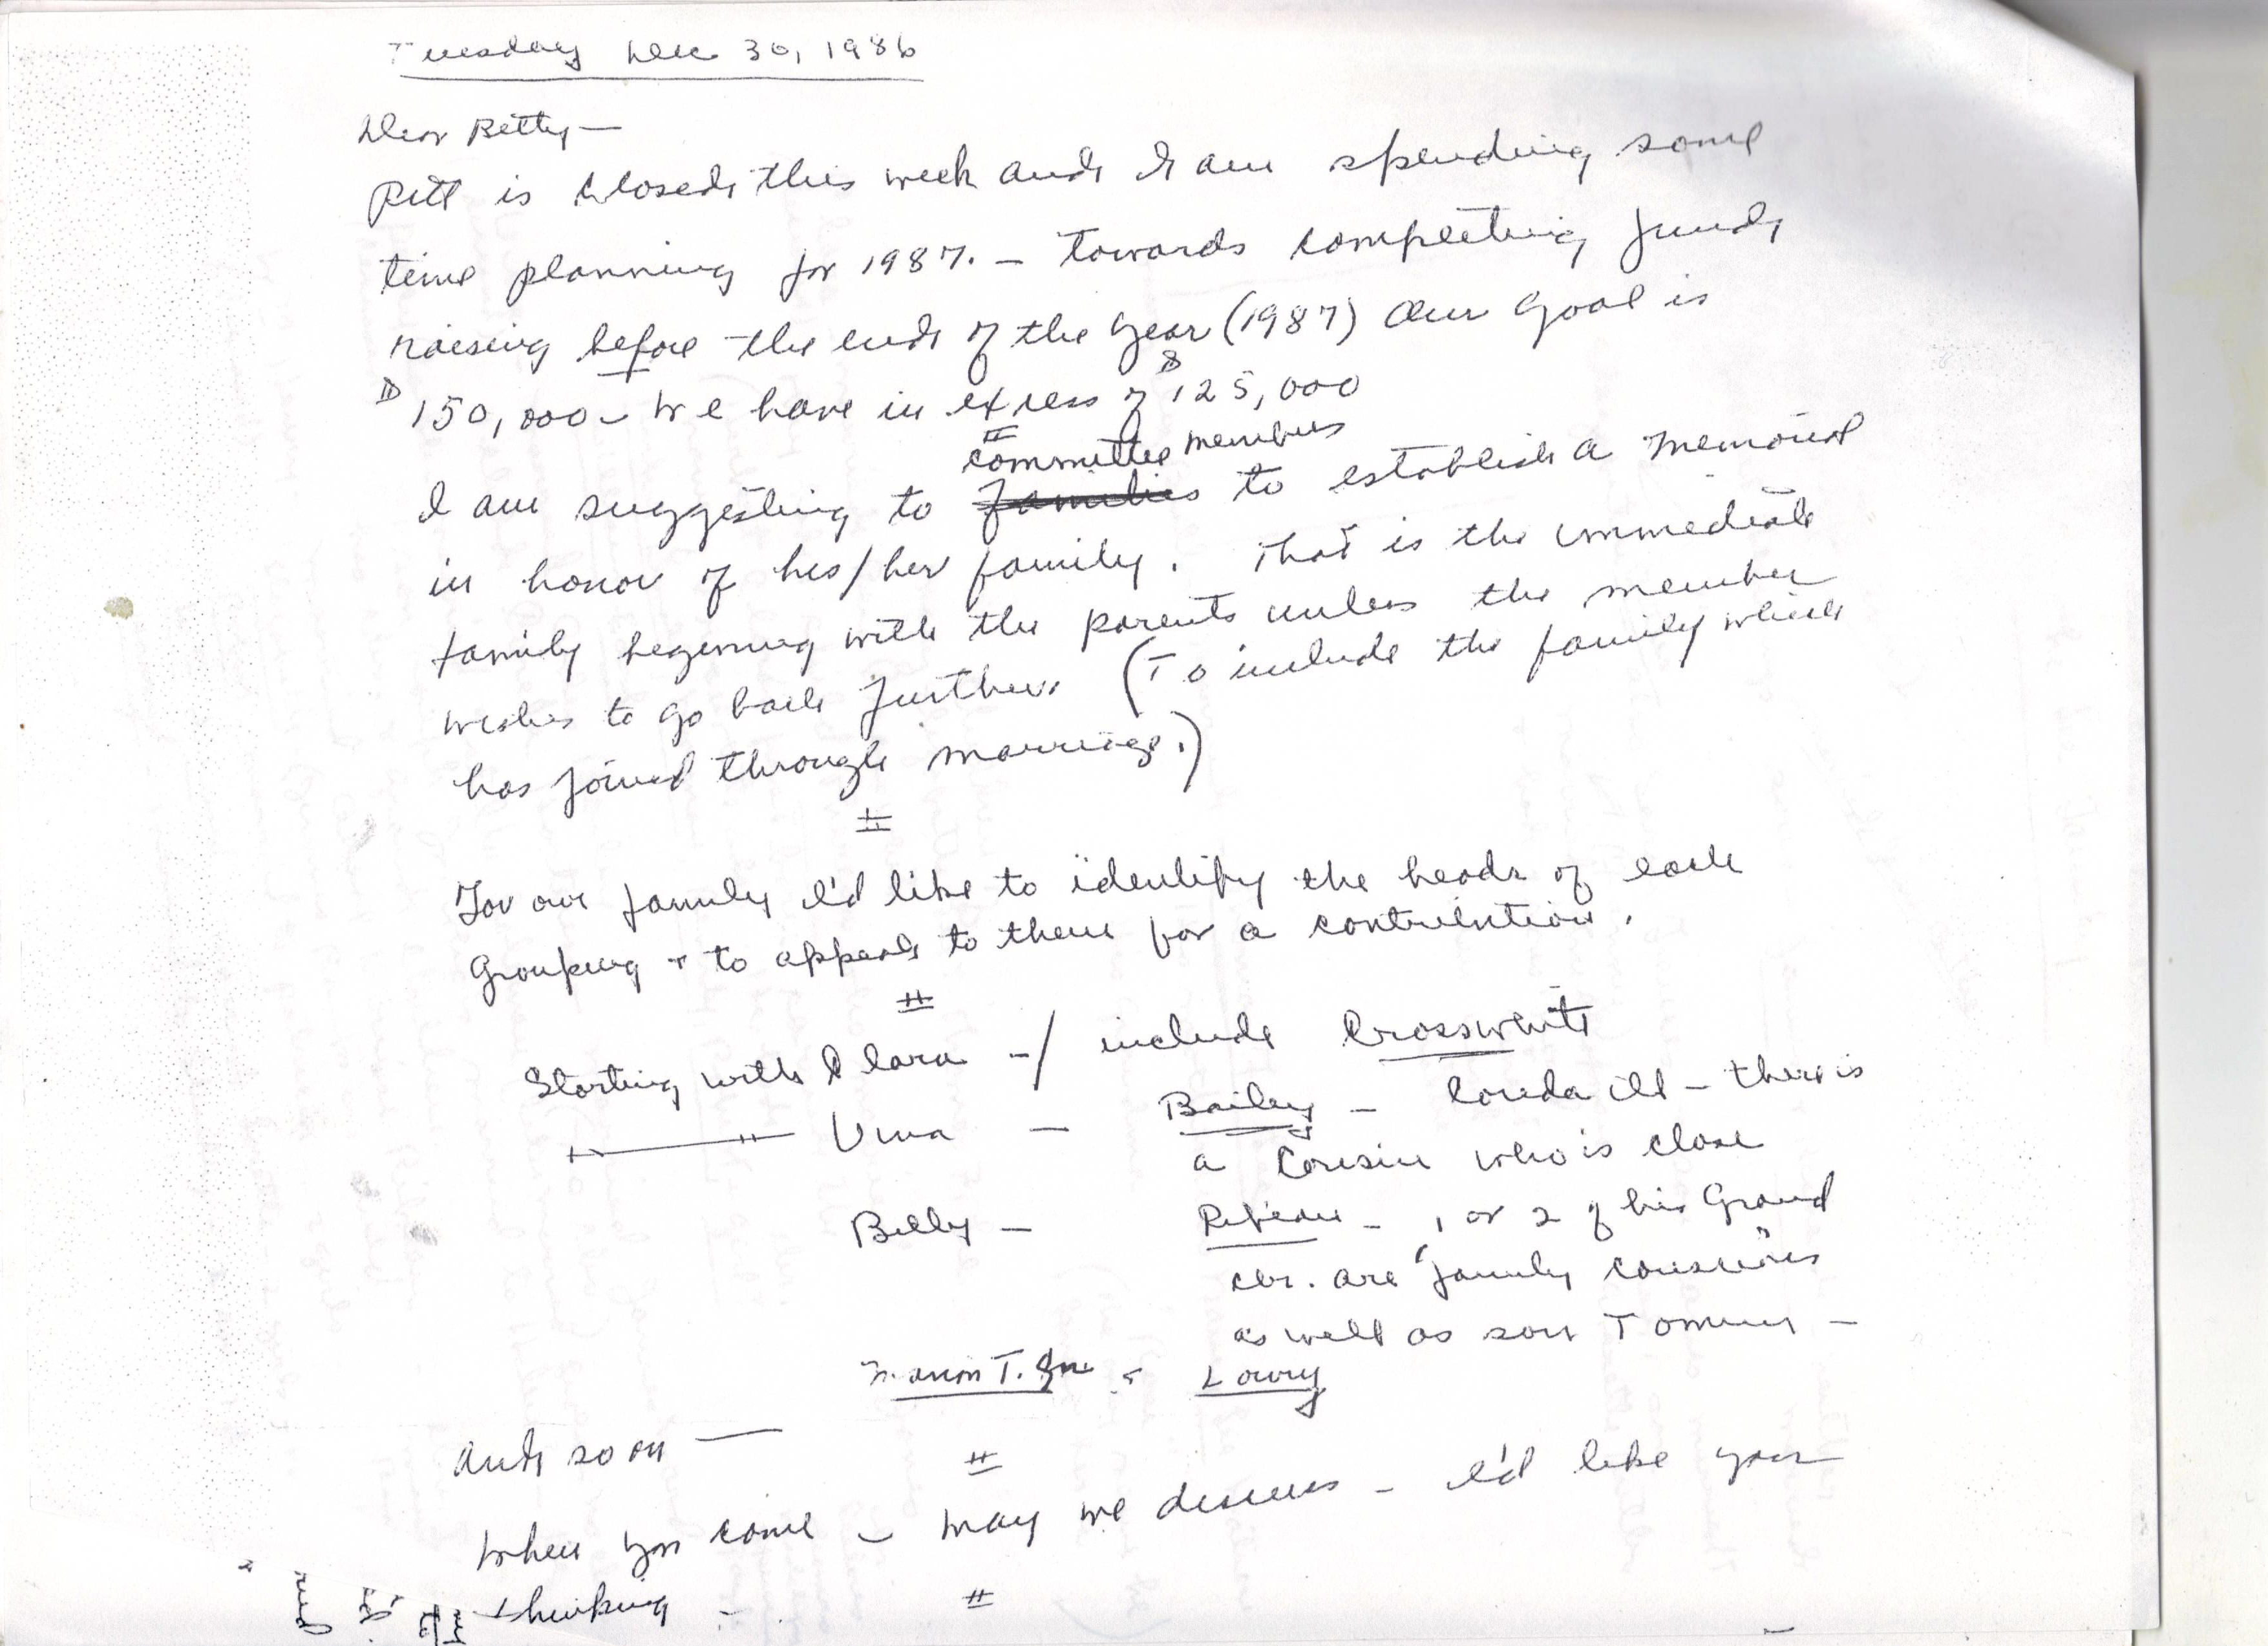 Tuesday Dec 30, 1986
Dear Betty—
Pitt is closed this week and I am spending some
time planning for 1987. — towards completing fund
raising before the end of the year (1987) Our goal is
$150,000 – We have in excess of $125,000
committee members
I am suggesting to families to establish a memorial
in honor of his/her family. That is the immediate
family beginning with the parents unless the member
wishes to go back further. (To include the family which
has joined through marriage.)
#
For our family I'd like to identify the heads of each
Grouping + to appeal to them for a contribution.
#
Starting with Clara –/ include Crosswhite
Una — Bailey – Loueda ill – there is
a cousin who is close
Billy — – 1 or 2 of his Grand
chr. are "family conscious"
as well as son Tommy –
Marion T. Jr. – Lowry
and so on —
#
When you come – may we discuss – I'd like your
thinking –
#